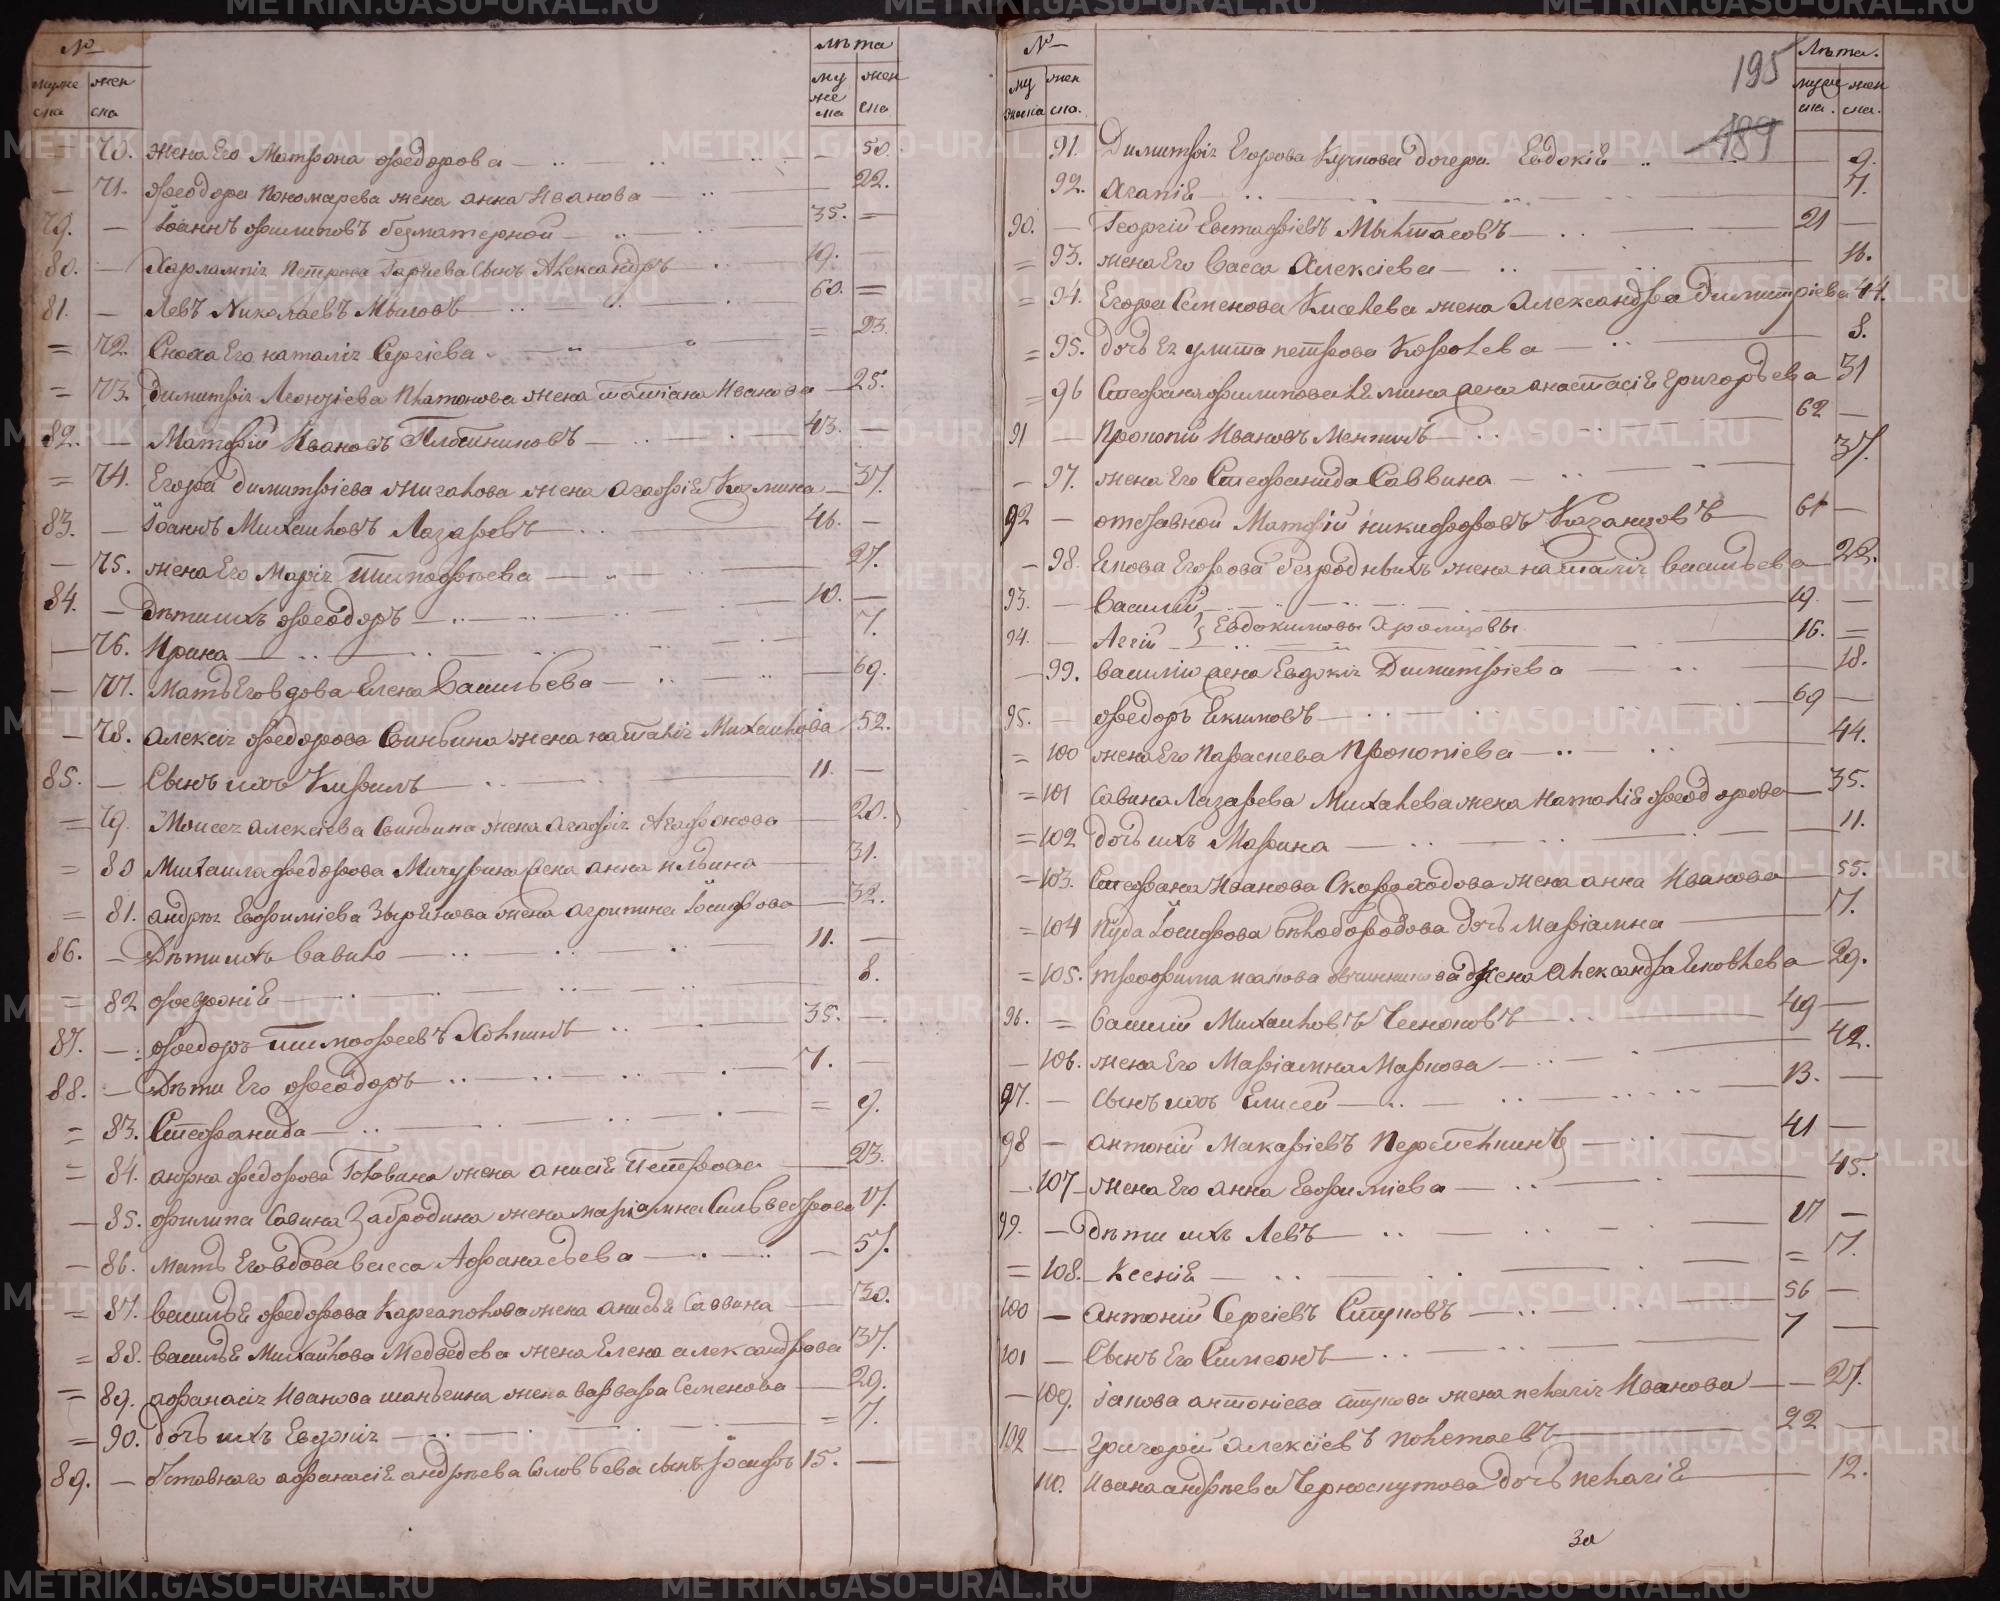 № Лѣта
муже ска жен ска му же ска жен ска
70. жена Его Матрона Ѳеодорова 50.
71. Ѳеодора Пономарева жена Анна Иванова 22.
79. Іоаннъ Филиповъ безматерной 35.
80. Харлампія Петрова сынъ Александръ 19.
81. Левъ Николаевъ Мыловъ 60.
72. Сноха Его Наталія Сергіева 23.
73. Димитрія Леонтіева Платонова жена Татіана Иванова 25.
82. Матфій Ивановъ Плотниковъ 43.
74. Егора Димитріева Жигалова жена Агафія Козмина 37.
83. Іоаннъ Михаиловъ Лазаревъ 46.
75. жена Его Марія Тимофѣева 27.
84. Дѣти ихъ Ѳеодоръ 10.
76. Ирина 7.
77. Мать Его вдова Елена Васильева 69.
78. Алексія Ѳеодорова Свиньина жена Наталія Михаилова 52.
85. Сынъ ихъ Кирилъ 11.
79. Моисея Алексіева Свиньина жена Агафія Агафонова 20.
80 Михаила Ѳеодорова Мичурина жена Анна Ильина 31.
81. Андрея Евфиміева Зырянова жена Агрипина Іосифова 32.
86. Дѣти ихъ Савило 11.
82 8.
87. Ѳеодоръ Тимофеевъ Холкинъ 35.
88. Дѣти Его Ѳеодоръ 7.
83. Стефанида 9.
84. Ѳеодорова Головина жена Анисія Петрова 23.
85. Филипа Савина Забродина жена Маріамна Сильвестрова 17.
86. Мать Его вдова Васса Афанасьева 57.
87. Василья Ѳеодорова Каргаполова жена Анисья Саввина 30.
88. Василья Михаилова Медведева жена Елена Александрова 37.
89. Афанасія Иванова Шаньгина жена Варвара Семенова 29.
90. дочь ихъ Евдокія 7.
89. Отставнаго Афанасія Андрѣева Соловьева сынъ Іосифъ 15.
195
189
№ Лѣта.
му жска жен ска. мужес ка. жен ска.
91. Димитрія Егорова Кучкова дочери Евдокія 9.
92. Агапія 7.
90. Георгій Евстафіевъ Мыльтасовъ 21
93. жена Его Васса Алексіева 18.
94. Егора Семенова Киселева жена Александра Димитріева 44.
95. дочь Ея Улита Петрова Королева 8.
96 Стефана Филипова жена Анастасія Григорьева 31
91 Прокопій Ивановъ Менкинъ 62
97. жена Его Стефанида Саввина 37.
92 отставной Матфій Никифоровъ Казанцовъ 61
98. Екова Егорова безродныхъ жена Наталія Васильева 22.
93. Василій 19.
Евдокимовы
94. Аггій 16.
99. Василія жена Евдокія Димитріева 18.
95. Ѳедоръ Екимовъ 69
100 жена Его Параскева Прокопіева 44.
101 Савина Лазарева Михалева жена Наталія Ѳеодорова 35.
102 дочь ихъ Марина 11.
103. Стефана Иванова Скороходова жена Анна Иванова 55.
104 Іуда Іосифова Бѣлобородова дочь Маріамна 17.
105. Трофима Исакова Овчинникова жена Александра Ековлева 29.
96. Василій Михаиловъ Чесноковъ 49
106. жена Его Маріамна Маркова 42.
97. Сынъ ихъ Елисей 13.
98 Антоній Макаріевъ Перепелкинъ 41
107 жена Его Анна Евфиміева 45.
99. Дѣти ихъ Левъ 17
108. Ксенія 17.
100 Антоній Сергіевъ Стуковъ 56
101 Сынъ Его Симеонъ 7
109. Іакова Антоніева Стукова жена Пелагія Иванова 27.
102 Григорій Алексіевъ Полетаевъ 22
110. Ивана Андрѣева Черноскутова дочь Пелагія 12.
За
METRIKI.GASO-URAL.RU